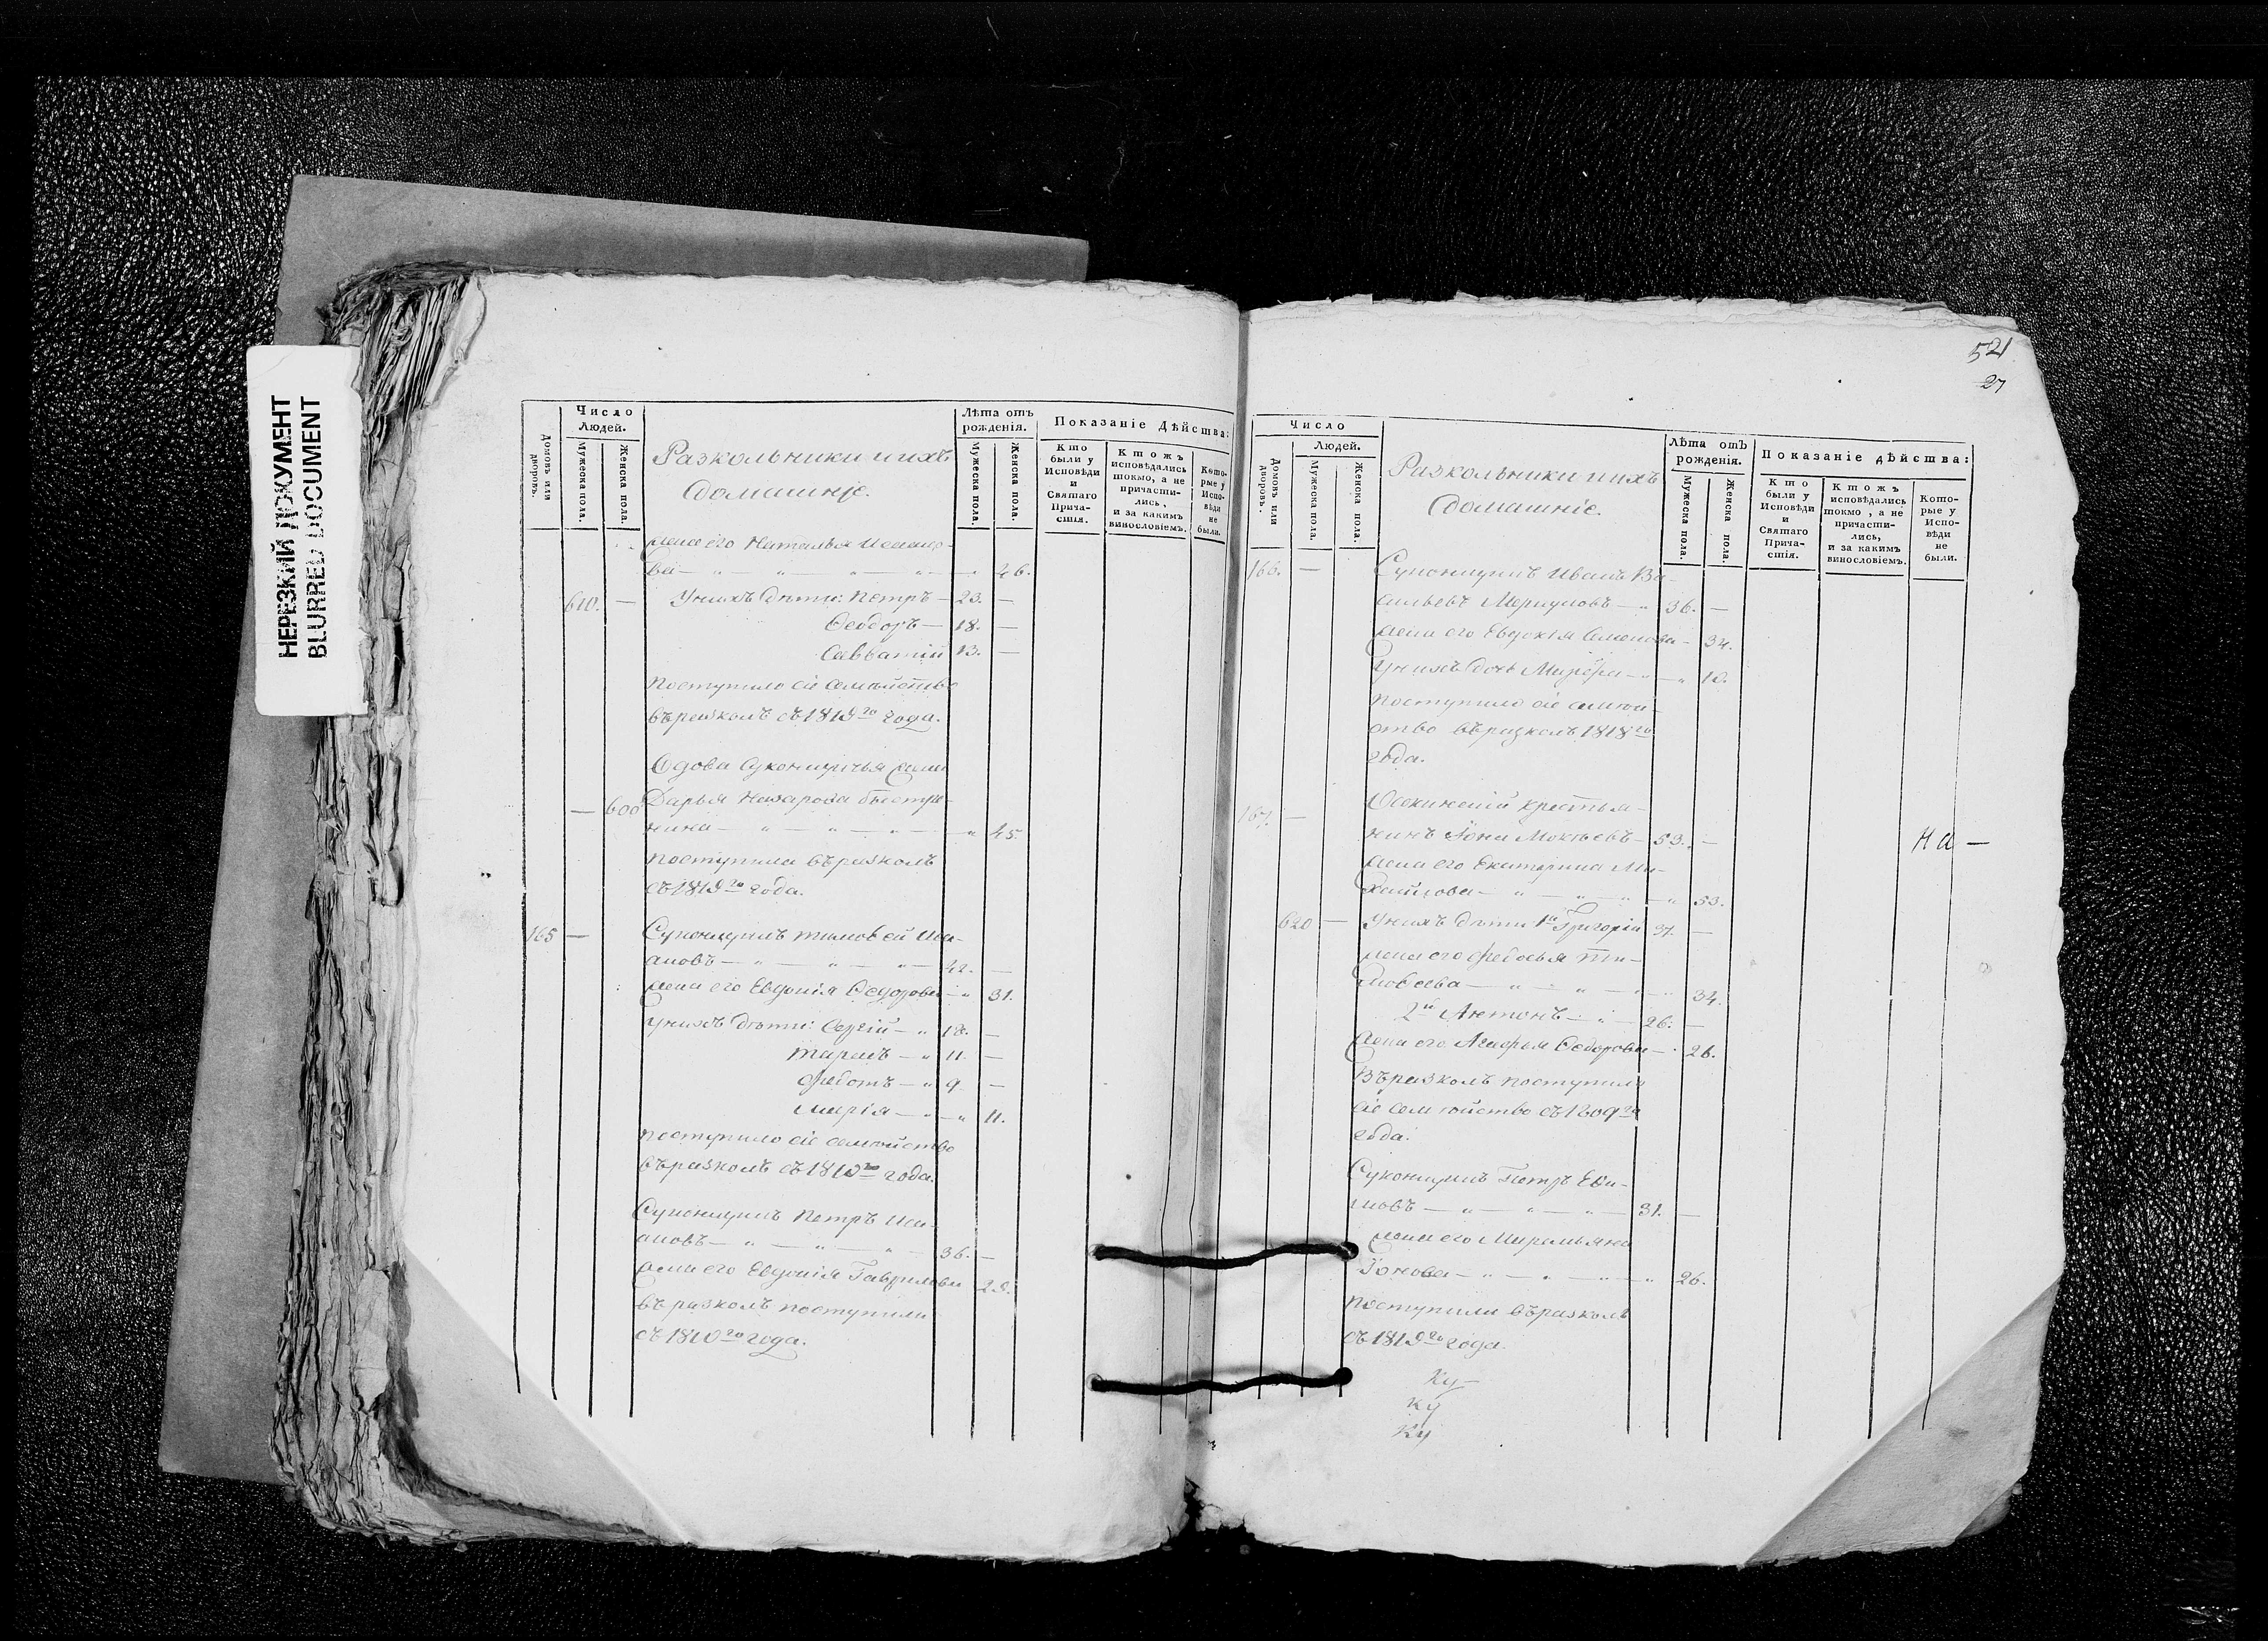 НЕРЕЗКИЙ ДОКУМЕНТ
BLURRED DOCUMENT
Домовъ или дворовъ.
Число Людей.
Мужеска пола.
Женска пола.
Разкольники и ихъ
домашніе.
Лѣта отъ рожденія.
Мужеска пола.
Женска пола.
Показаніе Дѣйства:
Кто были у Исповѣди и Святаго Прича-стія.
Ктожъ исповѣдались токмо, а не причасти-лись, и за какимъ винословіемъ.
Кото-рые у Испо-вѣди не были.
жена его Наталья
ва — 46.
610. — У нихъ дѣти: Петръ — 23. —
Ѳеодоръ — 18. —
Савватій 13. —
поступило сіе семѣйство
въ разколъ съ 1819го года.
Вдова
— 600 Дарья Назарова Быстри-
нина — 45.
поступила въ разколъ
съ 1819го года.
165 — Суконщикъ Тимоѳей Иса-
аковъ — 42. —
жена его Евдокія Ѳедорова — 31.
У нихъ дѣти: Сергій — 18. —
Тарасъ — 11 —
Федотъ — 9 —
Марія — 11.
поступило сіе семѣйство
въ разколъ съ 1810го года.
Суконщикъ Петръ Иса-
аковъ — 36. —
жена его Евдокія Гаврилова 28.
въ разколъ поступили
съ 1810го года.
521
27
Число
Людей.
Домовъ или дворовъ.
Мужеска пола.
Женска пола.
Разкольники и ихъ
домашніе.
Лѣта отъ рожденія.
Мужеска пола.
Женска пола.
Показаніе дѣйства:
Кто были у Исповѣди и Святаго Прича-стія.
Ктожъ исповѣдались токмо, а не причасти-лись, и за какимъ винословіемъ.
Кото-рые у Испо-вѣди не были.
166. — Суконщикъ Иванъ Ва-
сильевъ Меркуловъ — 36. —
жена его Евдокія Семенова — 34.
У нихъ дочь — 10.
поступило сіе семѣй-
ство въ разколъ 1818го
года.
167. — крестья-
нинъ Іона — 53. — НА —
жена его Екатерина Ми-
хайлова — 53.
620 — У нихъ дѣти 1й Григорій 37. —
жена его Федосья Ти-
моѳеева — 34.
2й Антонъ — 26. —
жена его Агафья Ѳедорова — 26.
Въ разколъ поступило
сіе семѣйство съ 1809го
года.
Суконщикъ Петръ Еѳи-
мовъ — 31. —
жена его Маремьяна
Іонова — 26.
поступили въ разколъ
съ 1819го года.
Ку
Ку
Ку